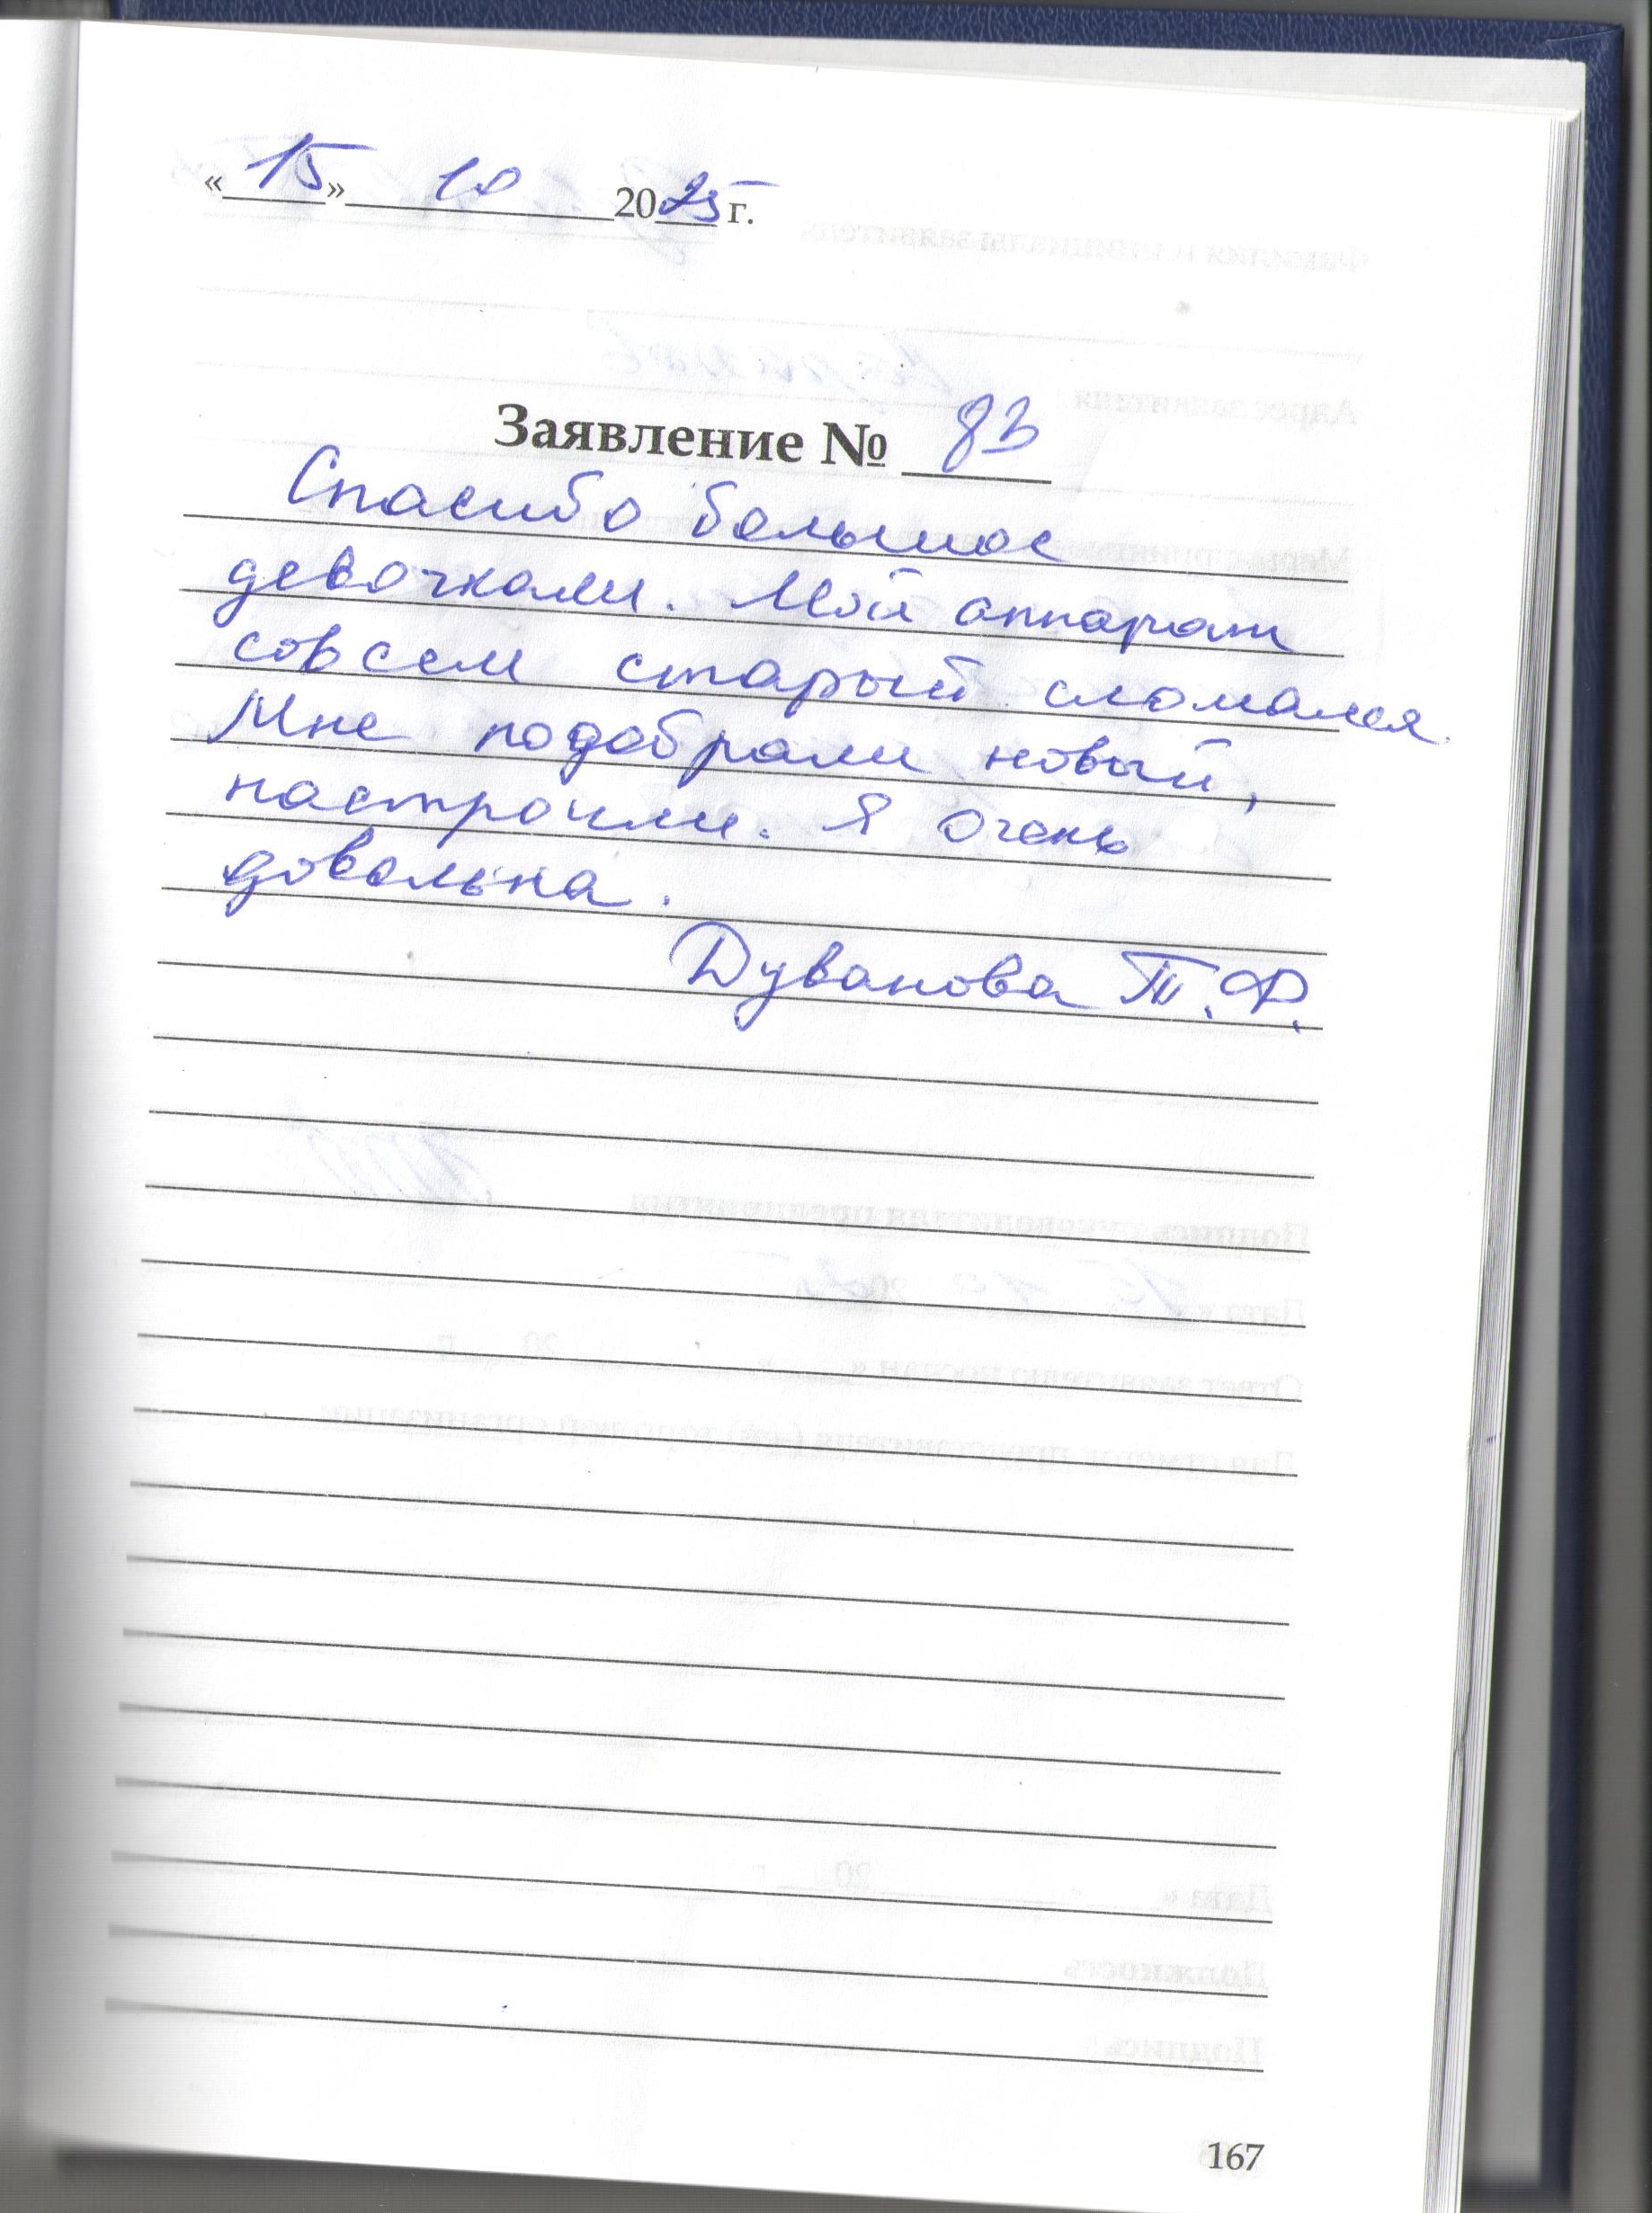 «15» 10 2025 г.
Заявление № 83
Спасибо большое
девочкам. Мой аппарат
совсем старый сломался.
Мне подобрали новый,
настроили. Я очень
довольна.
Дуванова Т.Ф.
167